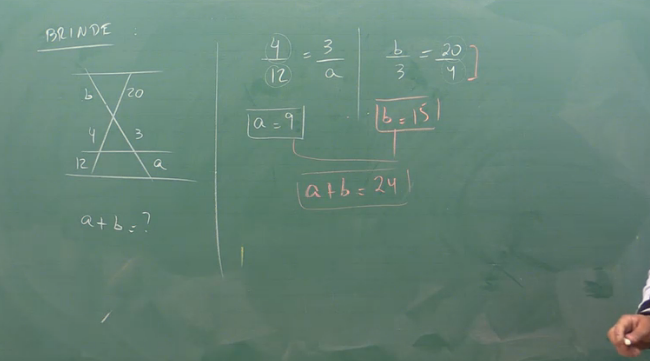 BRINDE :
b 20
4 3
12 a
a + b = ?
4/12 = 3/a
b/3 = 20/4
a = 9
b = 15
a + b = 24